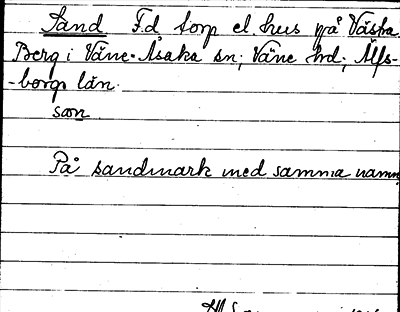 Sand F.d torp el. hus på Västra
Berg i Väne-Åsaka sn; Väne hd; Älfs-
-borgs län.
san
På sandmark med samma namn